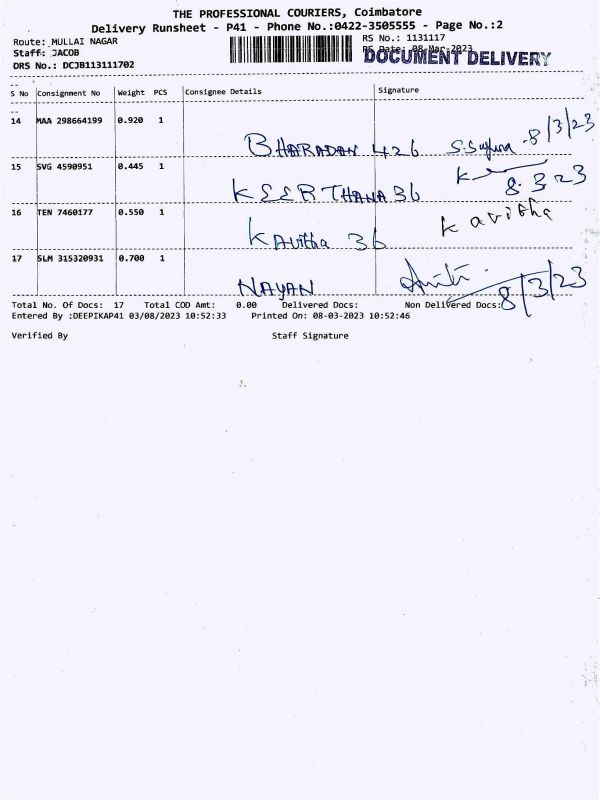 THE PROFESSIONAL COURIERS, Coimbatore
Delivery Runsheet - P41 - Phone No.:0422-3505555 - Page No.:2
Route: MULLAI NAGAR
RS No.: 1131117
Staff: JACOB
RS Date: 08-Mar-2023
DOCUMENT DELIVERY
DRS No.: DCJB113111702
S No Consignment No Weight PCS Consignee Details Signature
14 MAA 298664199 0.920 1
BHARADAN 426 8/3/23
15 SVG 4590951 0.445 1
KEERTHANA 36 K 8.3.23
16 TEN 7460177 0.550 1
Kavitha 36 kavitha
17 SLM 315320931 0.700 1
NAYAN 8/3/23
Total No. Of Docs: 17 Total COD Amt: 0.00 Delivered Docs: Non Delivered Docs:
Entered By :DEEPIKAP41 03/08/2023 10:52:33 Printed On: 08-03-2023 10:52:46
Verified By Staff Signature